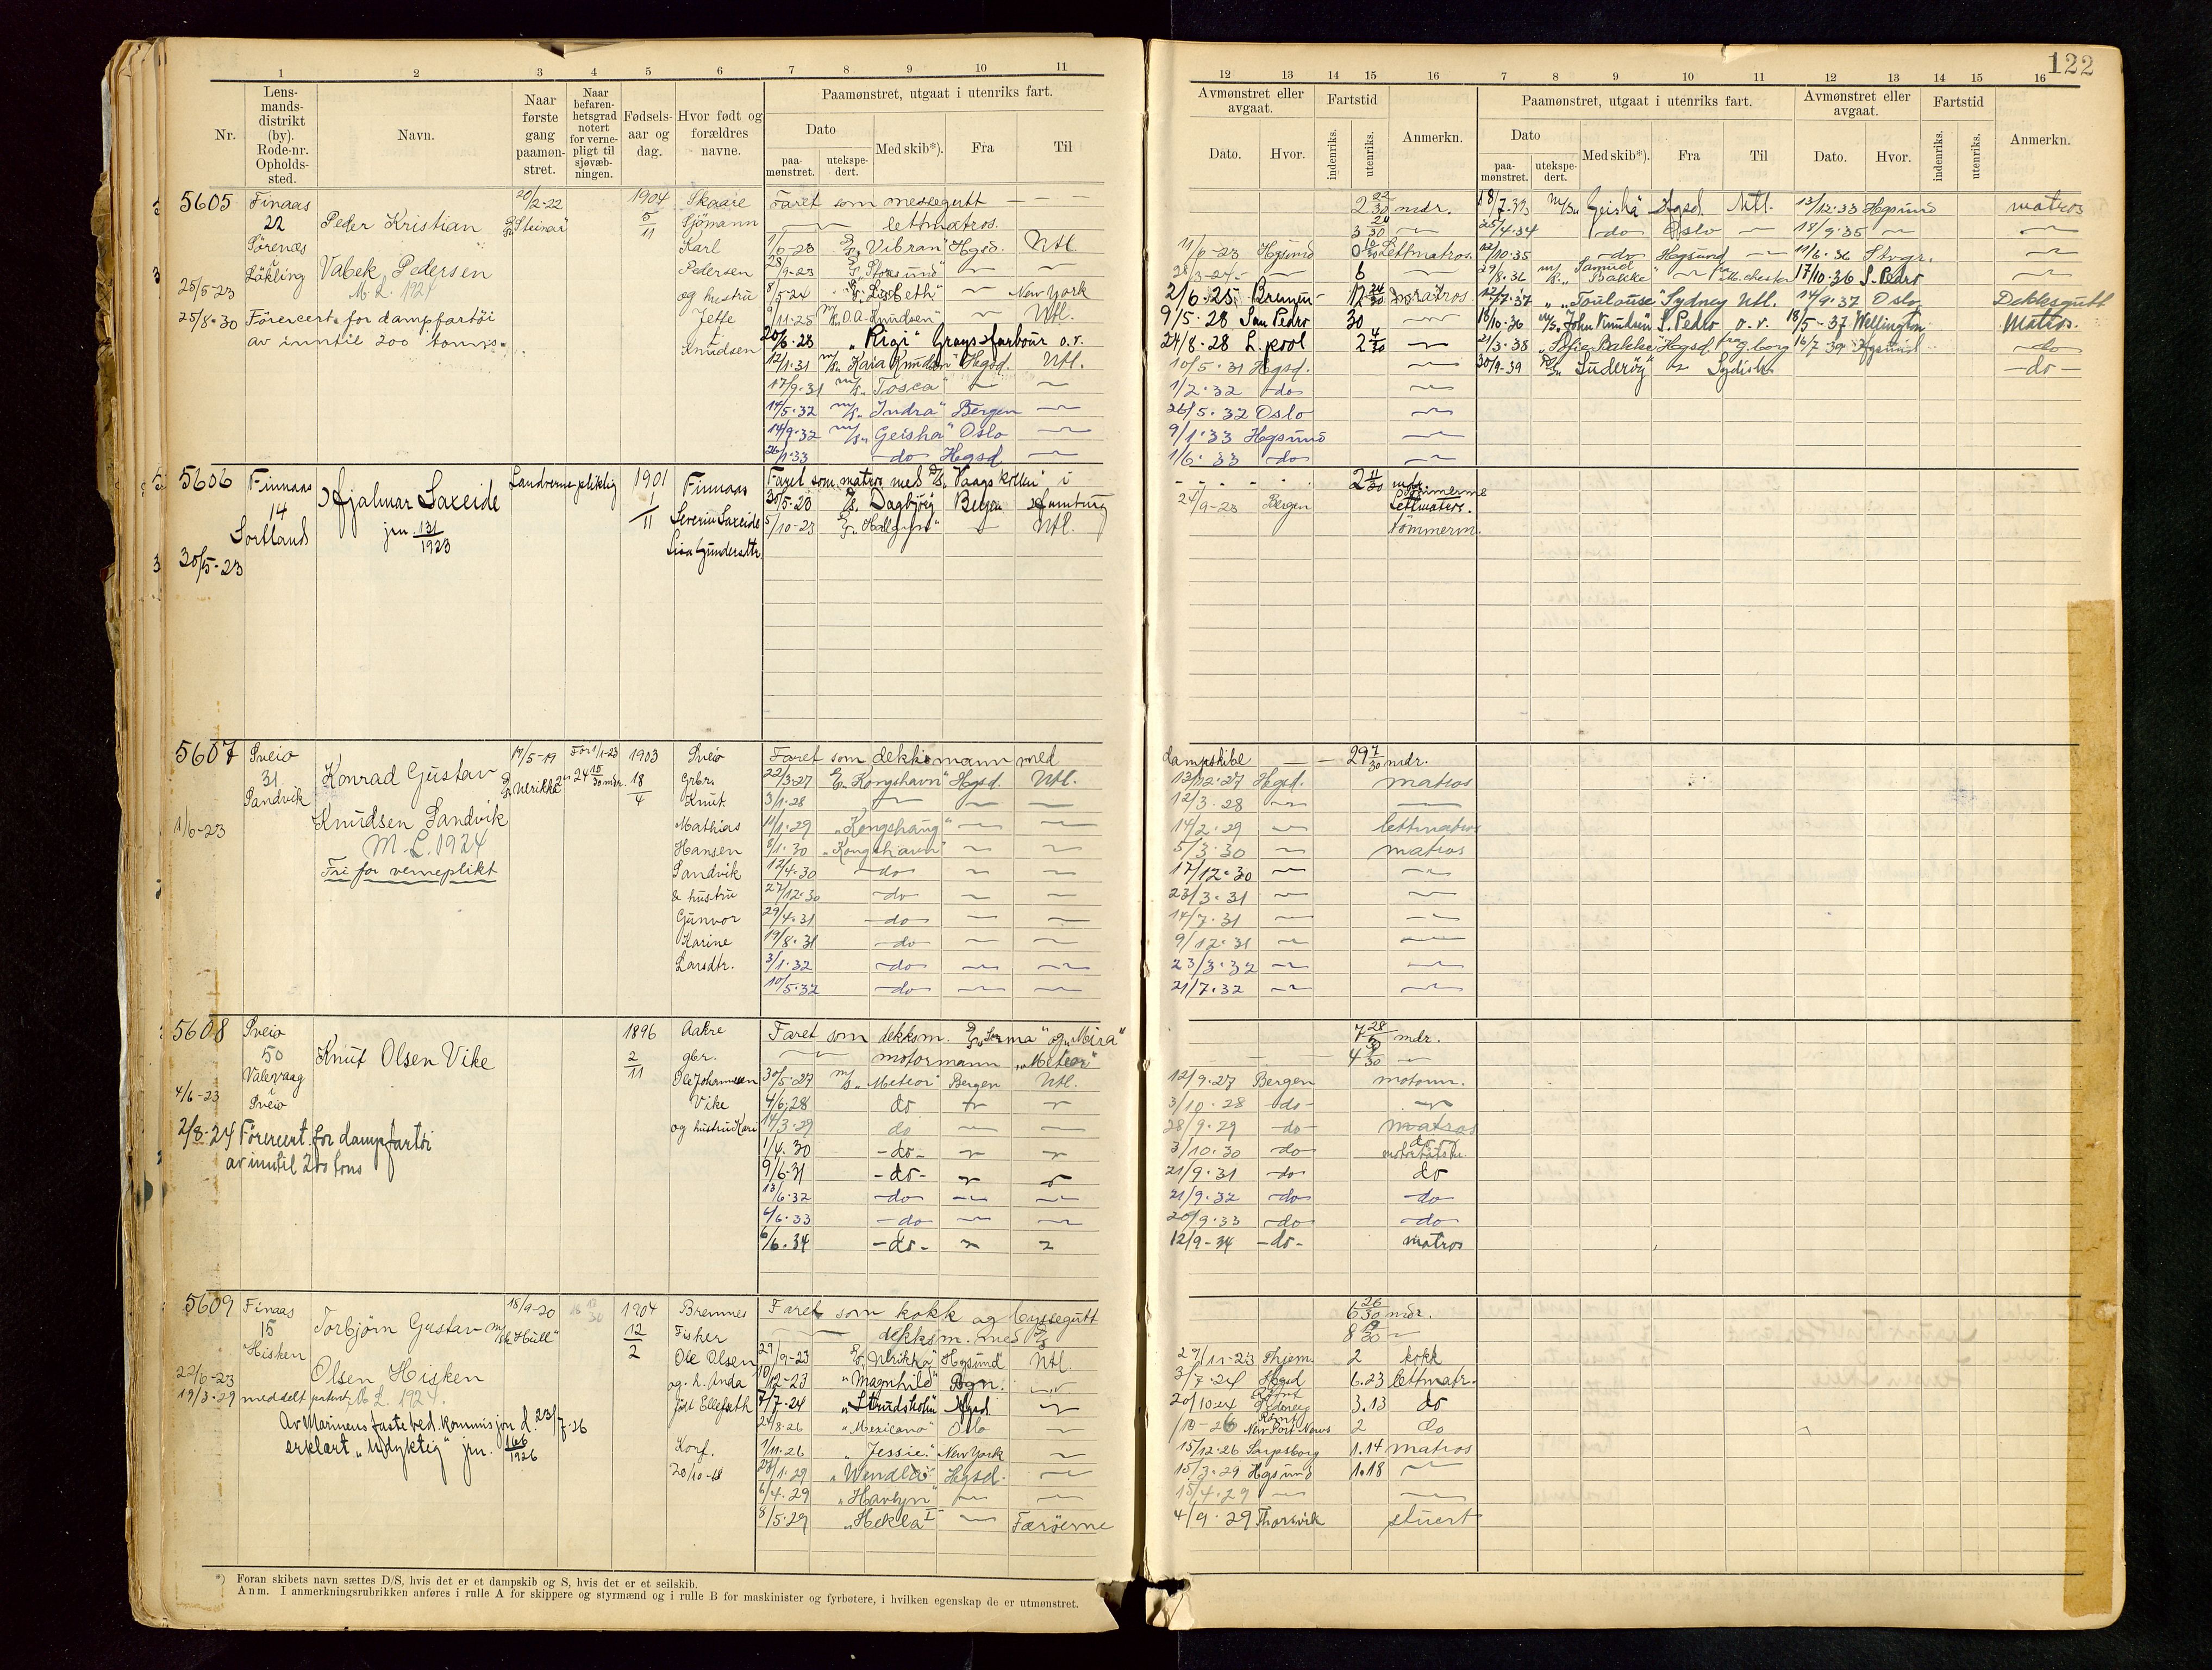 122
1 2 3 4 5 6 7 8 9 10 11
Nr.
Lensmandsdistrikt (by). Rode-nr. Opholdssted.
Navn.
Naar første gang paamønstret.
Naar befarenhetsgrad notert for vernepligt til sjøvæbningen.
Fødselsaar og dag.
Hvor født og forældres navne.
Paamønstret, utgaat i utenriks fart.
Dato
paamønstret. utekspedert.
Med skib*).
Fra
Til
12 13 14 15 16 7 8 9 10 11 12 13 14 15 16
Avmønstret eller avgaat.
Dato. Hvor.
Fartstid
indenriks. utenriks.
Anmerkn.
Paamønstret, utgaat i utenriks fart.
Dato
paamønstret. utekspedert.
Med skib*). Fra Til
Avmønstret eller avgaat.
Dato. Hvor.
Fartstid
indenriks. utenriks.
Anmerkn.
5605
Finaas
22
Sörenæs
i
Lökling
25/5-23
Peder Kristian
Vabek Pedersen
M. L. 1924
25/8-30 Förercert. for dampfartöi
av inntil 200 tonns.
20/2-22
"Steinar"
1904
5/11
Skaare
Sjömann
Karl
Pedersen
og hustru
Jette
f.
Knudsen
Faret som messegutt
lettmatros.
1/6-23 D/S "Vibran" Hgsd. Utl.
28/9-23 "Stoksund"
8/5-24 "Lisbeth" New York
9/11-25 M/S "O.A. Knudsen" Utl.
20/6-28 "Rigi" Grays Harbour o.v.
12/1.31 M/S "Kaia Knudsen" Hgsd. Utl.
17/9.31 M/S "Tosca"
14/5.32 M/S "Indra" Bergen
14/9.32 M/S "Geisha" Oslo
26/1.33 do Hgsd
2 22/30 mdr.
3 20/30
11/6-23 Hgsund lettmatros.
28/3-24 6
2/6-25 Bremen 17 24/30 matros
9/5-28 San Pedro 30
24/8-28 L.pool 2 4/30
10/5.31 Hgsd.
1/2.32 do
26/5.32 Oslo
9/1.33 Hgsund
1/6.33 do
18/7.33 M/S "Geisha" Hgsd. Utl. 13/12.33 Hgsund matros
25/4.34 do Oslo 18/9.35
12/10.35 do Hgsund 11/6.36 Stvgr.
29/8.36 M/S "Samuel Bakke" 17/10.36 S. Pedro
12/7.37 "Toulouse" Sydney Utl. 14/9.37 Oslo Dekksgutt
18/10.36 M/S "John Knudsen" S. Pedro o.v. 18/5-37 Wellington Matros.
21/3.38 "Sofie Bakke" Hgsd. fra G.borg 16/7.39 Hgsund do
30/9-39 "Suderøy" Sydish. do
5606
Finnaas
14
Sortland
30/5-23
Hjalmar Saxeide
jrn 131/1923
Landvernepliktig
1901
1/11
Finnaas
Severin Saxeide
Lisa Gundersdtr.
Faret som matros med D/S "Vaagskollen" i
30/5-23 D/S "Dagbjörg" Bergen Hamburg
5/10-23 Utl.
2 11/30 mdr.
24/9-23 Bergen lettmatros.
tömmerm.
5607
Sveio
31
Sandvik
1/6-23
Konrad Gustav
Knudsen Sandvik
M. L. 1924
Fri for verneplikt
17/5-19
"Ulrikka"
För 1/1-23
24 15/30 mdr.
1903
18/4
Sveio
Grbr.
Knut
Mathias
Hansen
Sandvik
& hustru
Gunvor
Karine
Larsdtr.
Faret som dekksmann med
dampskibe 29 7/30 mdr.
22/3-27 D/S "Kongshavn" Hgsd. Utl. 13/12.27 Hgsd. matros
3/1.28 12/3.28
11/1.29 "Kongshaug" 14/2.29 lettmatros
8/1.30 "Kongshavn" 5/3.30 matros
12/4.30 do 17/12.30
27/12.30 do 23/3.31
29/4.31 do 14/7.31
19/8.31 do 9/12.31
3/1.32 do 23/3.32
10/5.32 do 21/7.32
5608
Sveio
50
Valevaag
i
Sveio
4/6-23
Knut Olsen Vike
2/8-24 Förercert. for dampfartöi
av inntil 200 tons
1896
2/11
Aakre
gbr.
Ole Johannessen
Vike
og hustru Kari
Faret som dekksm. og "Mira"
motormann "Meteor"
7 28/30 mdr.
4 9/30
30/5-27 M/S "Meteor" Bergen Utl. 12/9.27 Bergen motorm.
4/6.28 do 3/10.28 do
14/3.29 do 28/9.29 do matros
1/4.30 do 3/10.30 do
9/6.31 do 21/9.31 do do
13/6.32 do 21/9.32 do do
6/6.33 do 20/9.33 do do
6/6.34 do 12/9-34 do matros
5609
Finaas
15
Hisken
22/6-23
19/3-29 meddelt patent.
Torbjörn Gustav
Olsen Hisken
M. L. 1924.
Av Marinens faste bed. kommisjon d. 23/7-26
erklært "Udyktig" jrn. 166/1926
18/9-20
"Hull"
1904
12/2
Bremnes
Fisker
Ole Olsen
og h. Anda
född Ellefseth
Konf.
20/10-18
Faret som kokk og byssegutt
dekksm. med D/S
6 26/30 mdr.
8 19/30
29/9-23 D/S "Ulrikka" Hgsund Utl. 29/11-23 Thjem. 2 kokk
10/12-23 "Magnhild" Bgn. 3/7-24 Hgsd 6.23 lettmatr.
7/7-24 "Strudsholm" Hgsd. 20/10.24 3.13 do
24/8-26 "Mexicano" Oslo New Port News 2 do
1/11.26 "Jessie" New York 15/12-26 Sarpsborg 1.14 matros
28/1.29 "Wendla" Hgsd. 15/3.29 Hgsund 1.18
6/4.29 "Havbyn" 15/4.29
8/5.29 "Hekla I" Færöerne 4/9.29 Thorsvik stuert
*) Foran skibets navn sættes D/S, hvis det er et dampskib og S, hvis det er et seilskib.
Anm. I anmerkningsrubrikken anføres i rulle A for skippere og styrmænd og i rulle B for maskinister og fyrbøtere, i hvilken egenskap de er utmønstret.